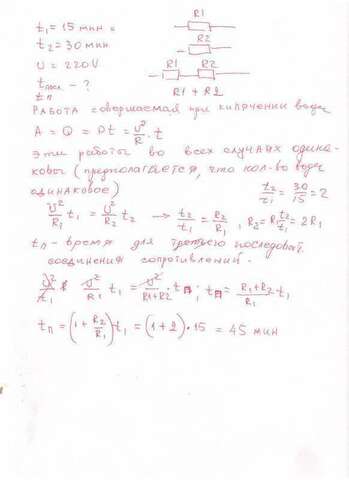 t₁ = 15 мин
R1
t₂ = 30 мин
R2
U = 220V
R1 R2
tпосл - ?
R1 + R2
tп
РАБОТА совершаемая при кипячении воды
A = Q = Pt = U²/R · t
эти работы во всех случаях одина-
ковы (предполагается, что кол-во воды
одинаковое)
t₂/t₁ = 30/15 = 2
U²/R₁ t₁ = U²/R₂ t₂ → t₂/t₁ = R₂/R₁ , R₂ = R₁ t₂/t₁ = 2R₁
tп - время для третьего последоват.
соединения сопротивлений.
U²/R₁ t₁ = U²/R1+R2 · tп ; tп = R₁+R₂/R₁ · t₁
tп = (1 + R₂/R₁) · t₁ = (1 + 2) · 15 = 45 мин